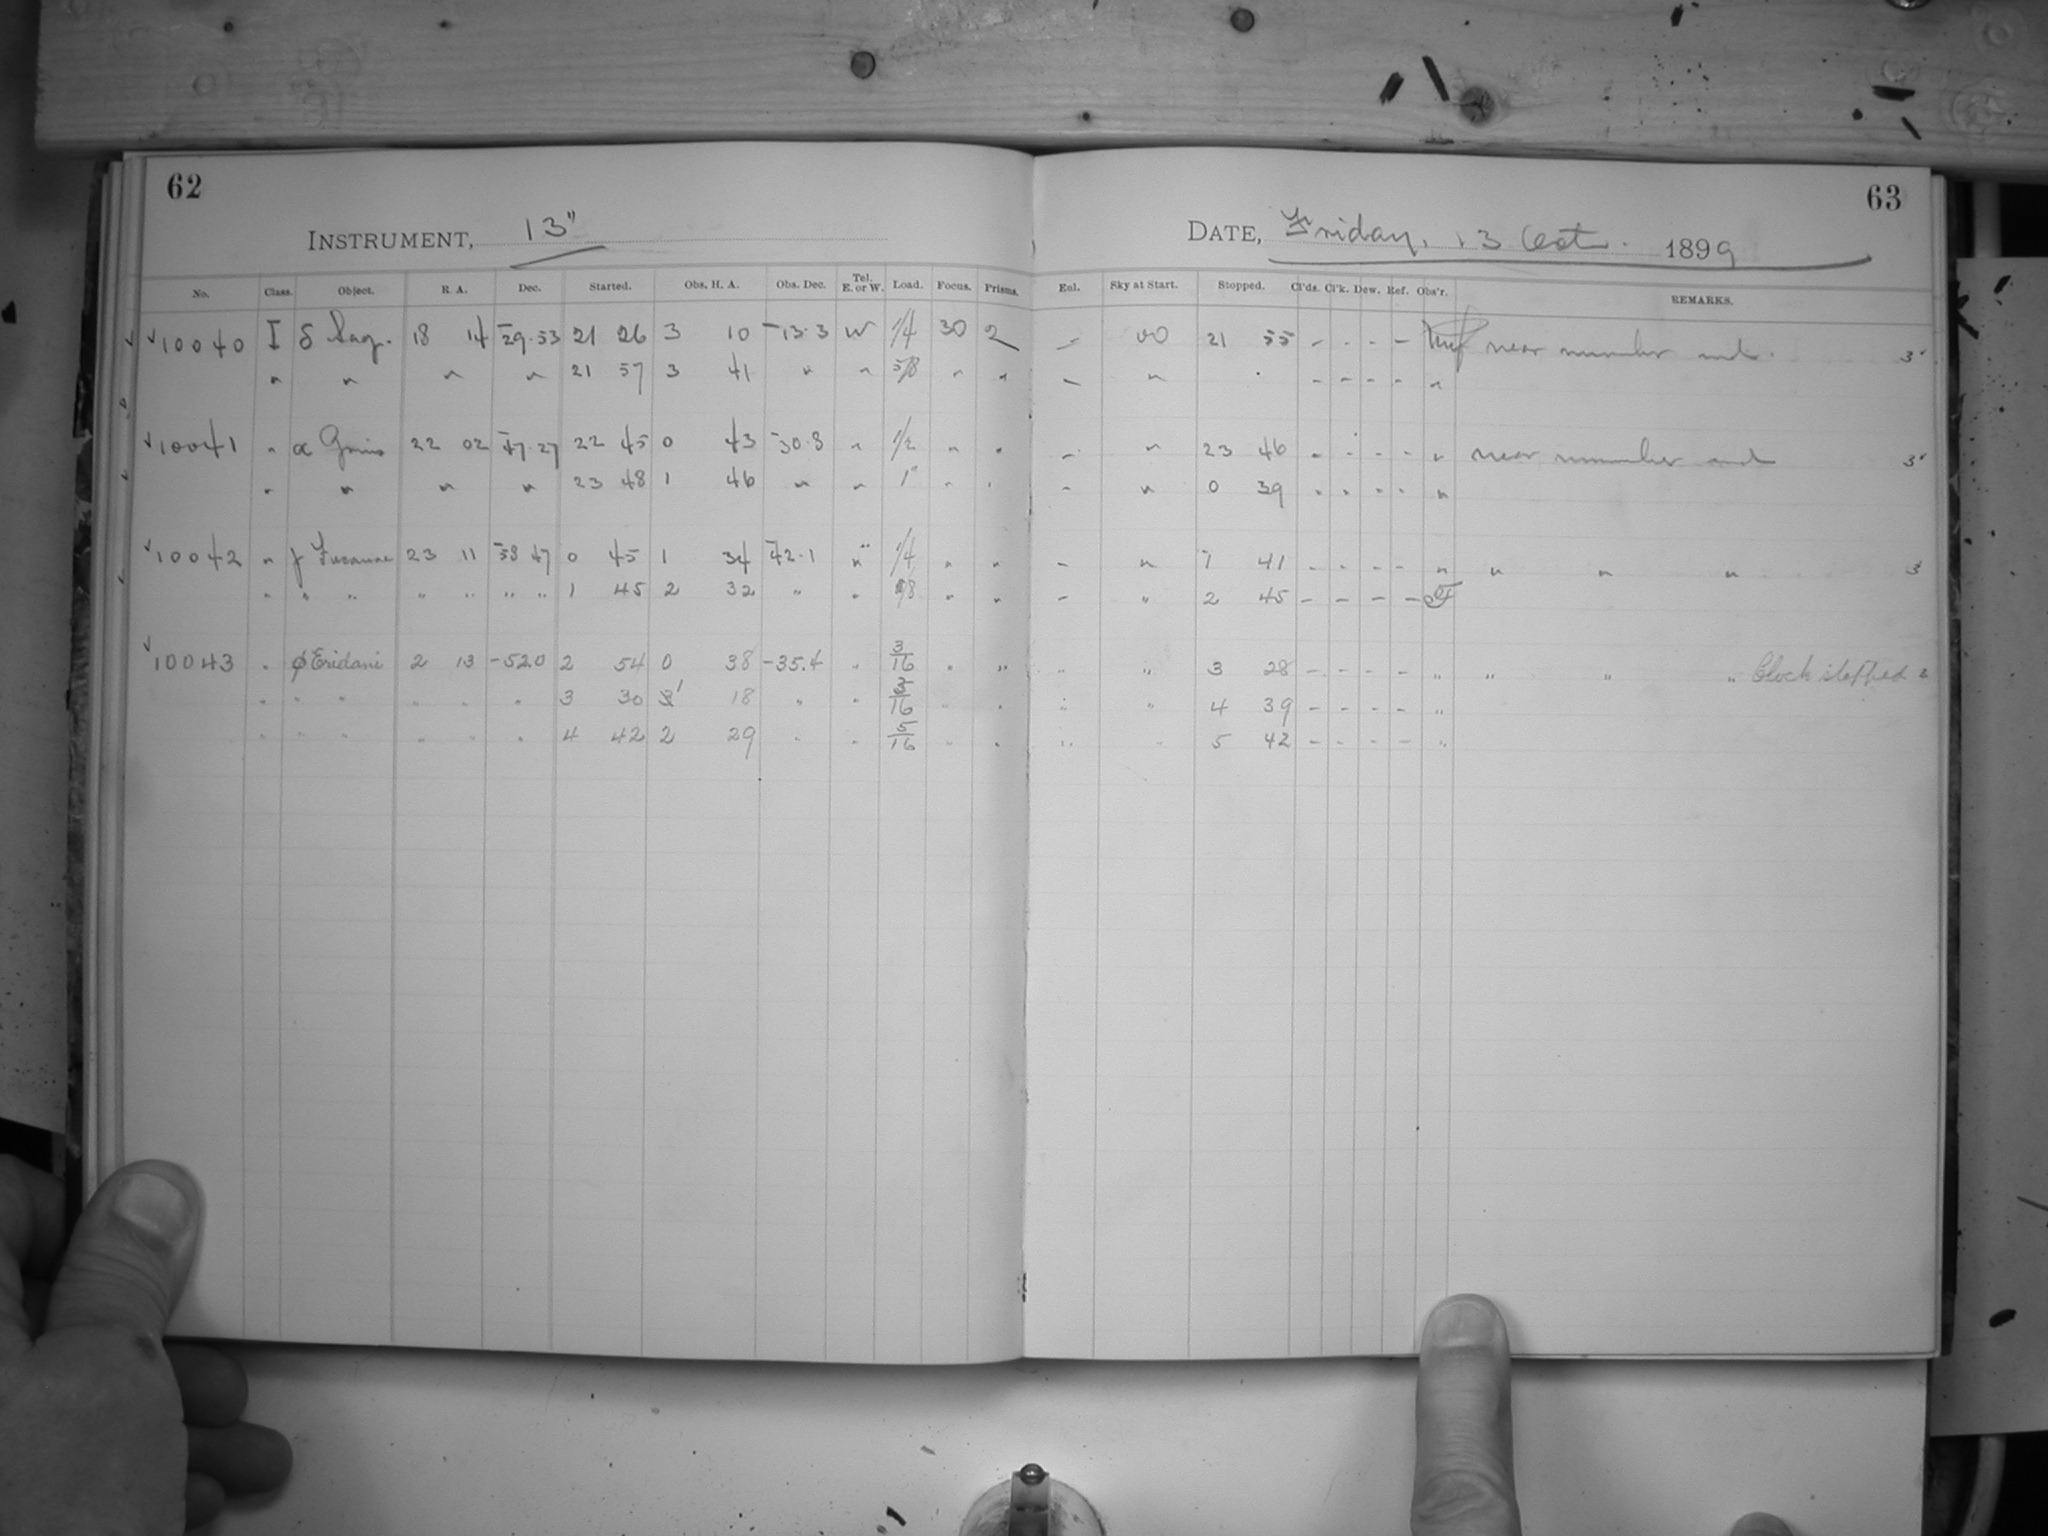 62
INSTRUMENT, 13"
No. Class. Object. R. A. Dec. Started. Obs. H. A. Obs. Dec. Tel. E. or W. Load. Focus. Prisms.
√10040 I δ Sag. 18 14 -29.53 21 26 3 10 -13.3 W 1/4 30 2
" " " " 21 57 3 41 " " 5/8 " "
√10041 " α Gruis 22 02 -47.27 22 45 0 43 -30.8 " 1/2 " "
" " " " 23 48 1 46 " " 1 " "
√10042 " γ Tucanae 23 11 -58 47 0 45 1 34 -42.1 " 1/4 " "
" " " " " " " 1 45 2 32 " " " "
√10043 " φ Eridani 2 13 -52.0 2 54 0 38 -35.4 " 3/16 " "
" " " " " " 3 30 1 18 " " 3/16 " "
" " " " " " 4 42 2 29 " " 5/16 " "
63
DATE, Friday, 13 Oct. 1899
Enl. Sky at Start. Stopped. Cl'ds. Cl'k. Dew. Ref. Obs'r. REMARKS.
- 00 21 55 - - - - near number end. 3"
- " - - - - "
- " 23 46 - - - - " near number end 3"
- " 0 39 - - - - "
- " 1 41 - - - - " " " " 3
- " 2 45 - - - -
" " 3 28 - - - - " " " " Clock stopped
" " 4 39 - - - - "
" " 5 42 - - - - "